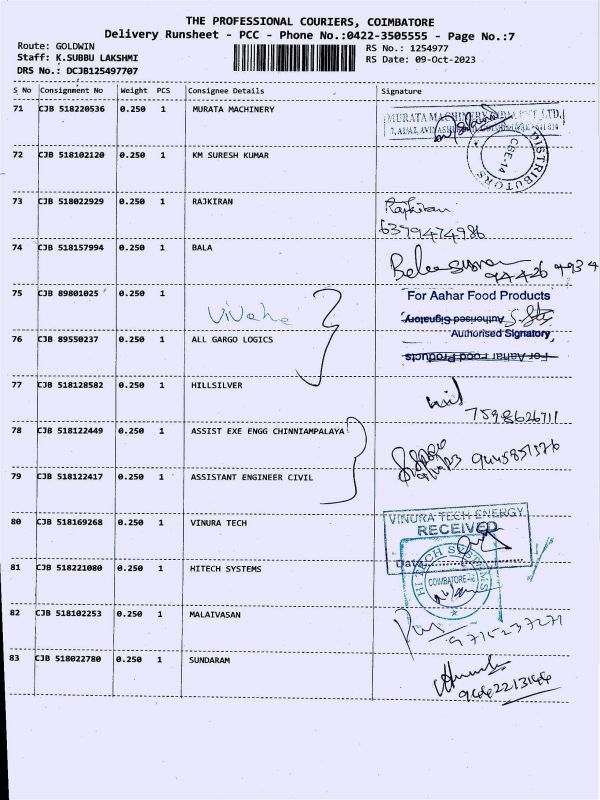 THE PROFESSIONAL COURIERS, COIMBATORE
Delivery Runsheet - PCC - Phone No.:0422-3505555 - Page No.:7
Route: GOLDWIN
Staff: K.SUBBU LAKSHMI
DRS No.: DCJB125497707
RS No.: 1254977
RS Date: 09-Oct-2023
S No Consignment No Weight PCS Consignee Details Signature
71 CJB 518220536 0.250 1 MURATA MACHINERY
MURATA MACHINERY INDIA PVT LTD.
72 CJB 518102120 0.250 1 KM SURESH KUMAR
DISTRIBUTORS
CBE-14
73 CJB 518022929 0.250 1 RAJKIRAN Rajkiran
6379474986
74 CJB 518157994 0.250 1 BALA
94426 4934
75 CJB 89801025 0.250 1 For Aahar Food Products
Vivaha
Authorised Signatory
76 CJB 89550237 0.250 1 ALL GARGO LOGICS Authorised Signatory
For Aahar Food Products
77 CJB 518128582 0.250 1 HILLSILVER
7598626711
78 CJB 518122449 0.250 1 ASSIST EXE ENGG CHINNIAMPALAYA
9445851576
79 CJB 518122417 0.250 1 ASSISTANT ENGINEER CIVIL
80 CJB 518169268 0.250 1 VINURA TECH VINURA TECH ENERGY
RECEIVED
Date
81 CJB 518221080 0.250 1 HITECH SYSTEMS
HI TECH SYSTEMS
COIMBATORE
82 CJB 518102253 0.250 1 MALAIVASAN
9715237271
83 CJB 518022780 0.250 1 SUNDARAM
9442213144